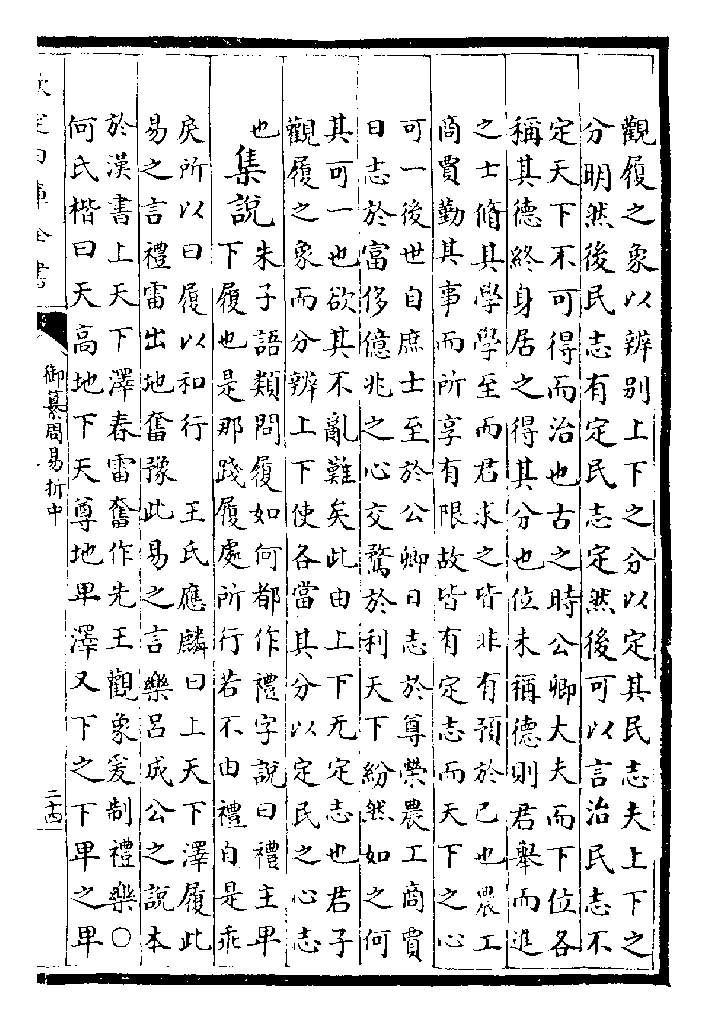 觀履之象以辨别上下之分以定其民志夫上下之
分明然後民志有定民志定然後可以言治民志不
定天下不可得而治也古之時公卿大夫而下位各
稱其德終身居之得其分也位未稱德則君舉而進
之士脩其學學至而君求之皆非有預於己也農工
商賈勤其事而所享有限故皆有定志而天下之心
可一後世自庶士至於公卿日志於尊榮農工商賈
日志於富侈億兆之心交騖於利天下紛然如之何
其可一也欲其不亂難矣此由上下无定志也君子
觀履之象而分辨上下使各當其分以定民之心志
也
集說
朱子語類問履如何都作禮字說曰禮主卑
下履也是那踐履處所行若不由禮自是乖
戾所以曰履以和行 王氏應麟曰上天下澤履此
易之言禮雷出地奮豫此易之言樂呂成公之說本
於漢書上天下澤春雷奮作先王觀象爰制禮樂○
何氏楷曰天高地下天尊地卑澤又下之下卑之卑
欽定四庫全書
御纂周易折中
二十四